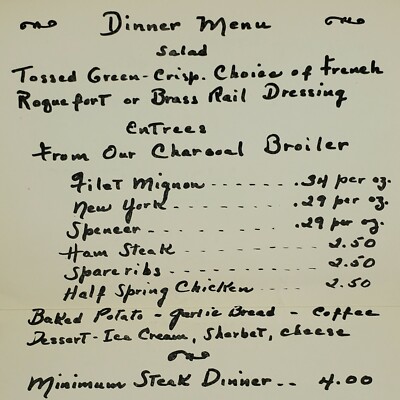 Dinner Menu
Salad
Tossed Green-Crisp. Choice of French
Roquefort or Brass Rail Dressing
Entrees
From Our Charcoal Broiler
Filet Mignon ------- .34 per oz.
New York ------- .29 per oz.
Spencer ------- .29 per oz.
Ham Steak ------- 2.50
Spareribs ------- 2.50
Half Spring Chicken ---- 2.50
Baked Potato - Garlic Bread - Coffee
Dessert - Ice Cream, Sherbet, Cheese
Minimum Steak Dinner -- 4.00